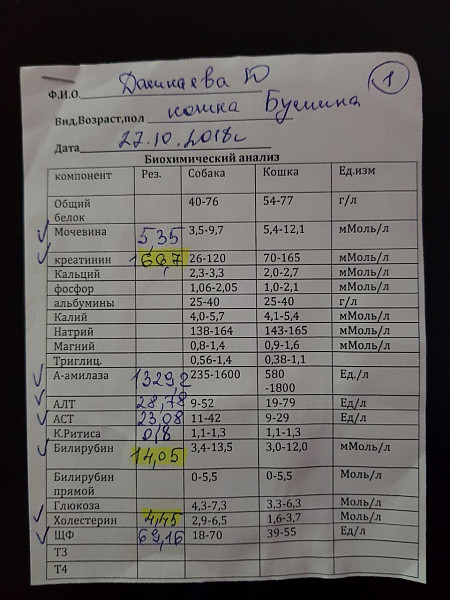 1
Ф.И.О. Данилаева Ю
Вид,Возраст,пол кошка Бусинка
Дата 27.10.2018г
Биохимический анализ
компонент Рез. Собака Кошка Ед.изм
Общий белок 40-76 54-77 г/л
Мочевина 5,35 3,5-9,7 5,4-12,1 мМоль/л
креатинин 166,7 26-120 70-165 мМоль/л
Кальций 2,3-3,3 2,0-2,7 мМоль/л
фосфор 1,06-2,05 1,0-2,1 мМоль/л
альбумины 25-40 25-40 г/л
Калий 4,0-5,7 4,1-5,4 мМоль/л
Натрий 138-164 143-165 мМоль/л
Магний 0,8-1,4 0,9-1,6 мМоль/л
Триглиц. 0,56-1,4 0,38-1,1
А-амилаза 1329,2 235-1600 580 -1800 Ед./л
АЛТ 28,78 9-52 19-79 Ед/л
АСТ 23,08 11-42 9-29 Ед/л
К.Ритиса 0,8 1,1-1,3 1,1-1,3
Билирубин 14,05 3,4-13,5 3,0-12,0 мМоль/л
Билирубин прямой 0-5,5 0-5,5 Моль/л
Глюкоза 4,3-7,3 3,3-6,3 Моль/л
Холестерин 4,45 2,9-6,5 1,6-3,7 Моль/л
ЩФ 69,16 18-70 39-55 Ед/л
Т3
Т4